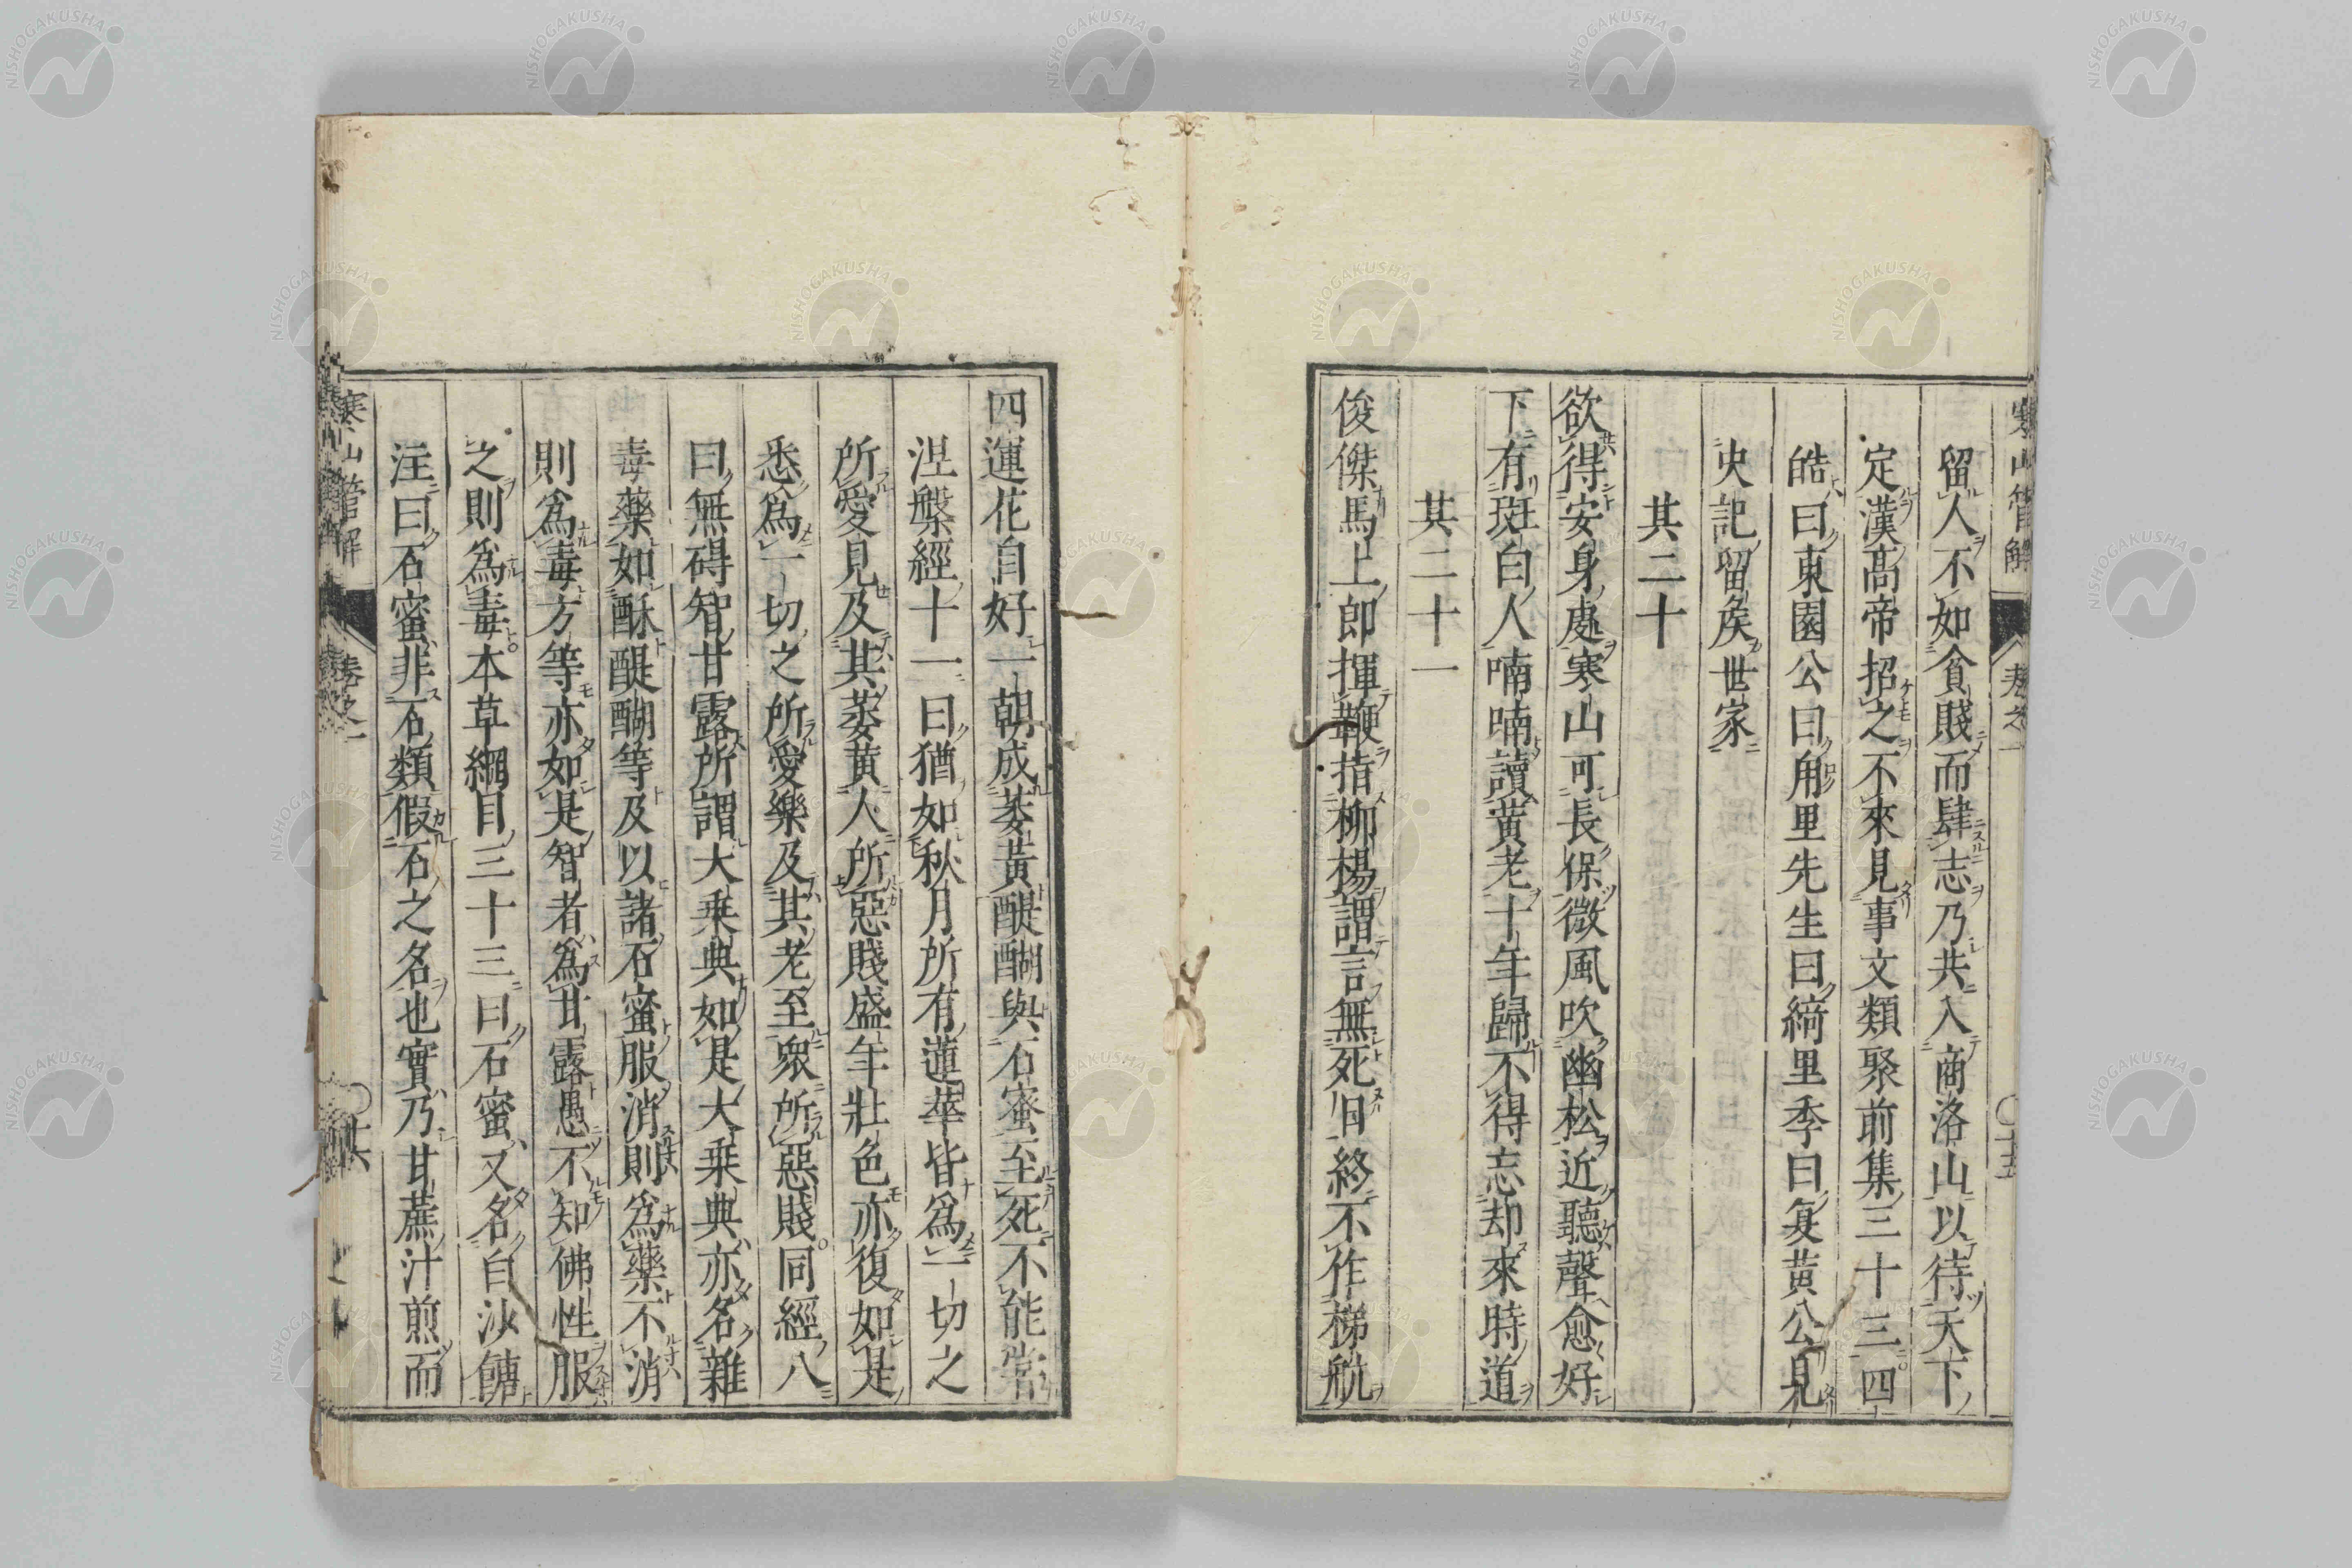 寒山管解 卷之一 〇十五
留人不如貧賤而肆志乃共入商洛山以待天下
定漢髙帝招之不來見事文類聚前集三十三四
皓曰東園公曰甪里先生曰綺里季曰夏黃公見
史記留侯世家
其二十
欲得安身處寒山可長保微風吹幽松近聽聲愈好
下有斑白人喃喃讀黃老十年歸不得忘却來時道
其二十一
俊傑馬上郎揮鞭指柳楊謂言無死日終不作梯航
四運花自好一朝成萎黃醍醐與石蜜至死不能嘗
涅槃經十一曰猶如秋月所有蓮華皆爲一切之
所愛見及其萎黃人所惡賤盛年壯色亦復如是
悉爲一切之所愛樂及其老至衆所惡賤同經八
曰無碍智甘露所謂大乗典如是大乗典亦名雜
毒藥如酥醍醐等及以諸石蜜服消則爲藥不消
則爲毒方等亦如是智者爲甘露愚不知佛性服
之則爲毒本草綱目三十三曰石蜜又名白沙餹
注曰石蜜非石類假石之名也實乃甘蔗汁煎而
寒山管解 卷之一 〇十六
NISHOGAKUSHA